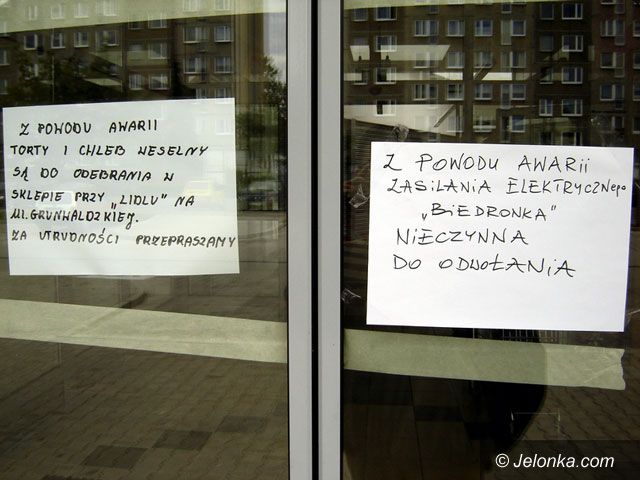 Z POWODU AWARII
TORTY I CHLEB WESELNY
SĄ DO ODEBRANIA W
SKLEPIE PRZY „LIDLU" NA
UL. GRUNWALDZKIEJ.
ZA UTRUDNOŚCI PRZEPRASZAMY
Z POWODU AWARII
ZASILANIA ELEKTRYCZNEgo
„BIEDRONKA"
NIECZYNNA
DO ODWOŁANIA
© Jelonka.com